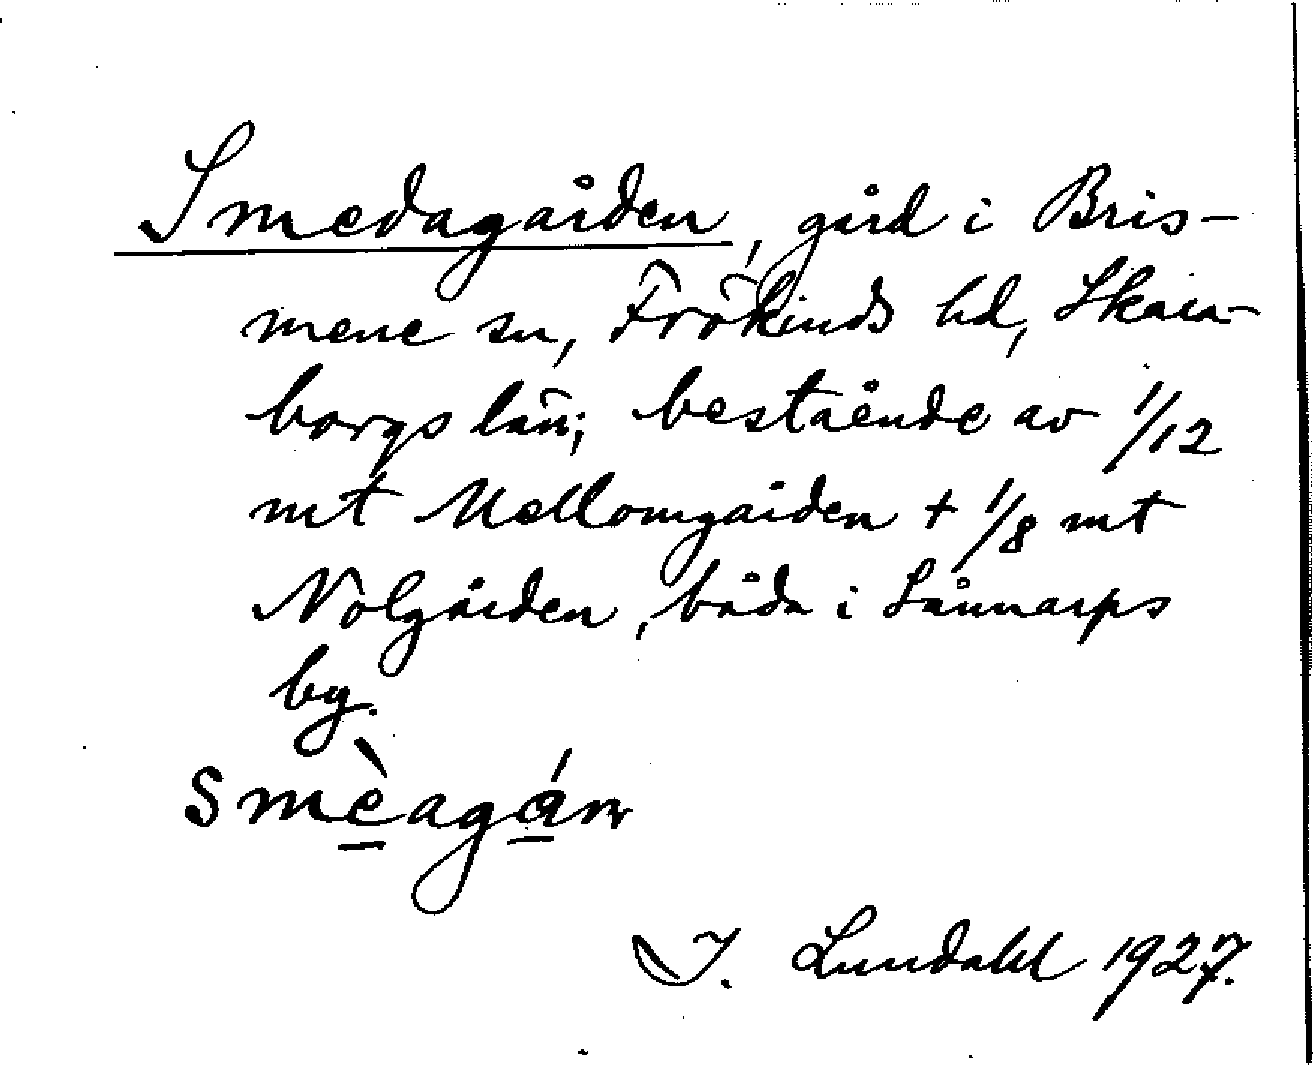 Smedagården, gård i Bris-
mene sn, Frökinds hd, Skara-
borgs län; bestående av 1/12
mt Mellomgården + 1/8 mt
Nolgården, båda i Lånnarps
by.
smèagán
I. Lundahl 1927.